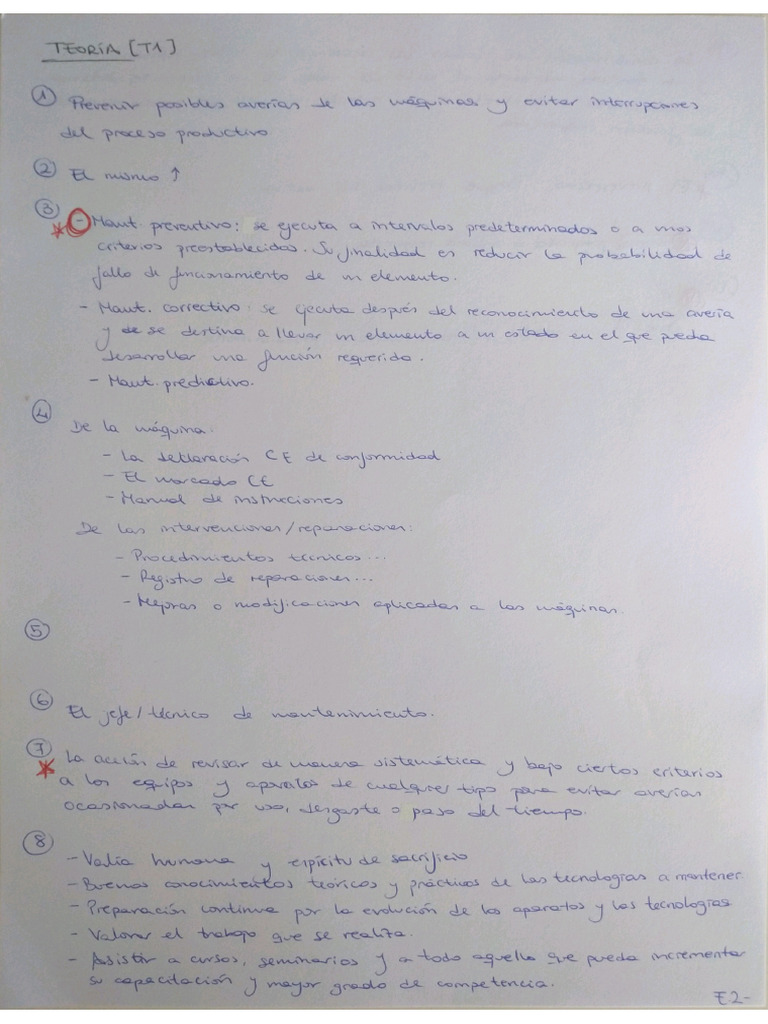 TEORÍA [T1]
① Prevenir posibles averías de las máquinas y evitar interrupciones
del proceso productivo
② El mismo ↑
③ - Mant. preventivo: se ejecuta a intervalos predeterminados o a unos
criterios preestablecidos. Su finalidad es reducir la probabilidad de
fallo de funcionamiento de un elemento.
- Mant. correctivo: se ejecuta después del reconocimiento de una avería
y de se destina a llevar un elemento a un estado en el que pueda
desarrollar una función requerida.
- Mant. predictivo.
④ De la máquina:
- La declaración CE de conformidad
- El marcado CE
- Manual de instrucciones
De las intervenciones/reparaciones:
- Procedimientos técnicos...
- Registro de reparaciones...
- Mejoras o modificaciones aplicadas a las máquinas.
⑤
⑥ El jefe/técnico de mantenimiento.
⑦ La acción de revisar de manera sistemática y bajo ciertos criterios
a los equipos y aparatos de cualquier tipo para evitar averías
ocasionadas por uso, desgaste o paso del tiempo.
⑧ - Valía humana y espíritu de sacrificio
- Buenos conocimientos teóricos y prácticos de las tecnologías a mantener.
- Preparación continua por la evolución de los aparatos y las tecnologías
- Valorar el trabajo que se realiza.
- Asistir a cursos, seminarios y a todo aquello que pueda incrementar
su capacitación y mayor grado de competencia.
E.2-